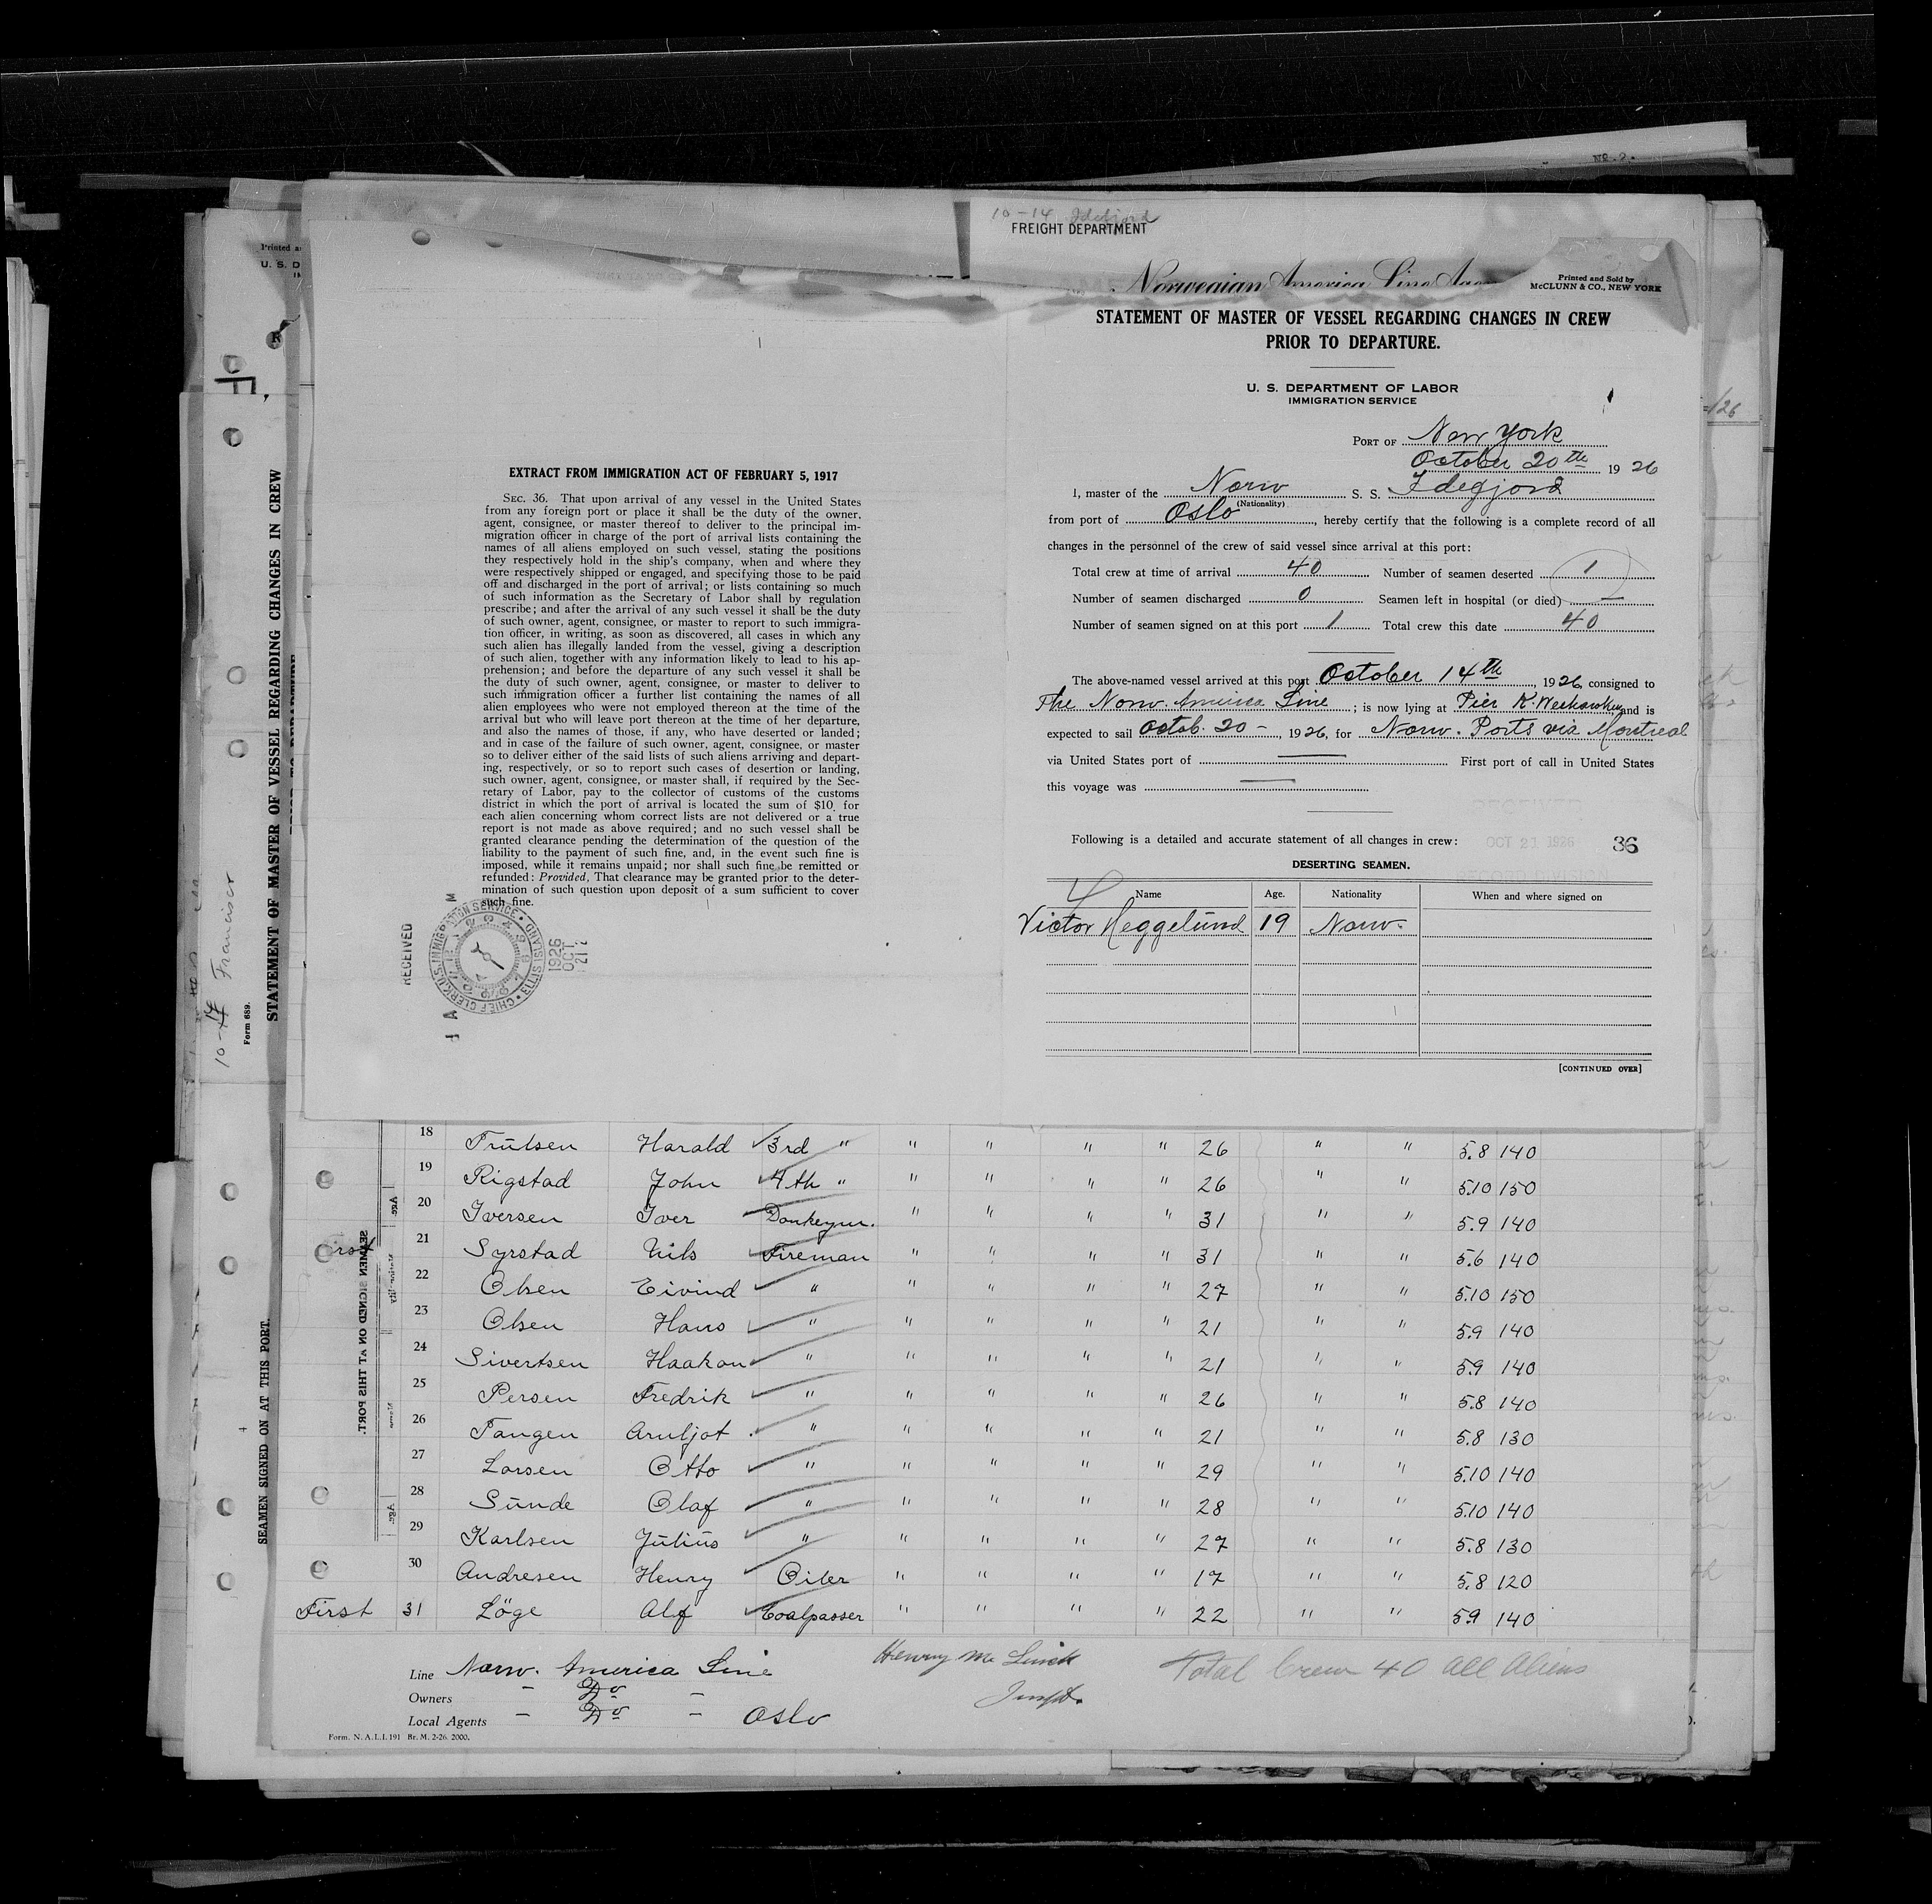 No. 2.
10-14 Idefjord
FREIGHT DEPARTMENT
Norwegian America Line
Printed and Sold by
McCLUNN & CO., NEW YORK
STATEMENT OF MASTER OF VESSEL REGARDING CHANGES IN CREW
PRIOR TO DEPARTURE.
U. S. DEPARTMENT OF LABOR
IMMIGRATION SERVICE
PORT OF New York
October 20th 1926
I, master of the Norw S. S. Idefjord
(Nationality)
from port of Oslo, hereby certify that the following is a complete record of all
changes in the personnel of the crew of said vessel since arrival at this port:
Total crew at time of arrival 40 Number of seamen deserted 1
Number of seamen discharged 0 Seamen left in hospital (or died) —
Number of seamen signed on at this port 1 Total crew this date 40
The above-named vessel arrived at this port October 14th, 1926, consigned to
The Norw. America Line; is now lying at Pier K. Weehawken and is
expected to sail Octob. 20 -, 1926, for Norw. Ports via Montreal
via United States port of — First port of call in United States
this voyage was —
Following is a detailed and accurate statement of all changes in crew:
RECEIVED
OCT 21 1926
RECORD DIVISION
36
DESERTING SEAMEN.
Name Age. Nationality When and where signed on
Victor Heggelund 19 Norw.
[CONTINUED OVER]
EXTRACT FROM IMMIGRATION ACT OF FEBRUARY 5, 1917
SEC. 36. That upon arrival of any vessel in the United States
from any foreign port or place it shall be the duty of the owner,
agent, consignee, or master thereof to deliver to the principal im-
migration officer in charge of the port of arrival lists containing the
names of all aliens employed on such vessel, stating the positions
they respectively hold in the ship's company, when and where they
were respectively shipped or engaged, and specifying those to be paid
off and discharged in the port of arrival; or lists containing so much
of such information as the Secretary of Labor shall by regulation
prescribe; and after the arrival of any such vessel it shall be the duty
of such owner, agent, consignee, or master to report to such immigra-
tion officer, in writing, as soon as discovered, all cases in which any
such alien has illegally landed from the vessel, giving a description
of such alien, together with any information likely to lead to his ap-
prehension; and before the departure of any such vessel it shall be
the duty of such owner, agent, consignee, or master to deliver to
such immigration officer a further list containing the names of all
alien employees who were not employed thereon at the time of the
arrival but who will leave port thereon at the time of her departure,
and also the names of those, if any, who have deserted or landed;
and in case of the failure of such owner, agent, consignee, or master
so to deliver either of the said lists of such aliens arriving and depart-
ing, respectively, or so to report such cases of desertion or landing,
such owner, agent, consignee, or master shall, if required by the Sec-
retary of Labor, pay to the collector of customs of the customs
district in which the port of arrival is located the sum of $10 for
each alien concerning whom correct lists are not delivered or a true
report is not made as above required; and no such vessel shall be
granted clearance pending the determination of the question of the
liability to the payment of such fine, and, in the event such fine is
imposed, while it remains unpaid; nor shall such fine be remitted or
refunded: Provided, That clearance may be granted prior to the deter-
mination of such question upon deposit of a sum sufficient to cover
such fine.
RECEIVED
CHIEF CLERK U.S. IMMIGRATION SERVICE • ELLIS ISLAND •
1926
OCT
21
18 Trulsen Harald 3rd " " " " " 26 " " 5.8 140
19 Rigstad John 4th " " " " " 26 " " 5.10 150
20 Iversen Iver Donkeym. " " " " 31 " " 5.9 140
21 Syrstad Nils Fireman " " " " 31 " " 5.6 140
22 Olsen Eivind " " " " " 27 " " 5.10 150
23 Olsen Hans " " " " " 21 " " 5.9 140
24 Sivertsen Haakon " " " " " 21 " " 5.9 140
25 Persen Fredrik " " " " 26 " " 5.8 140
26 Tangen Arnljot " " " " " 21 " " 5.8 130
27 Larsen Otto " " " " " 29 " " 5.10 140
28 Sunde Olaf " " " " " 28 " " 5.10 140
29 Karlsen Julius " " " " " 27 " " 5.8 130
30 Andresen Henry Oiler " " " " 17 " " 5.8 120
First 31 Löge Alf Coalpasser " " " " 22 " " 5.9 140
Line Norw. America Line
Owners - Do -
Local Agents - Do - Oslo
Total Crew 40 all Aliens
Form. N. A. L. I. 191 Br. M. 2-26. 2000.
STATEMENT OF MASTER OF VESSEL REGARDING CHANGES IN CREW
SEAMEN SIGNED ON AT THIS PORT.
SEAMEN SIGNED ON AT THIS PORT.
Form 689.
Francisco